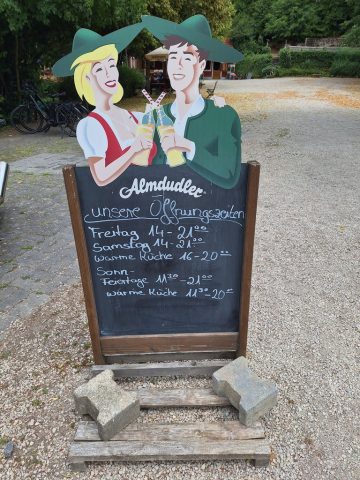 Almdudler
unsere Öffnungszeiten
Freitag 14-21⁰⁰
Samstag 14-21⁰⁰
warme Küche 16-20⁰⁰
Sonn-
Feiertage 11³⁰-21⁰⁰
warme Küche 11³⁰-20⁰⁰